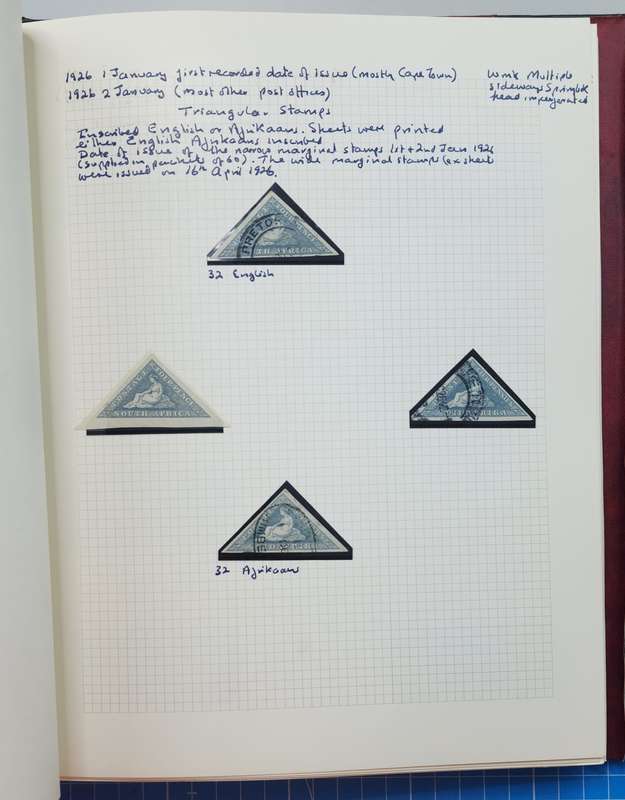 1926 1 January first recorded date of issue (mostly Cape Town)
1926 2 January (most other post offices)
Wmk Multiple
sideways Springbok
head imperforated
Triangular Stamps
Inscribed English or Afrikaans. Sheets were printed
either English Afrikaans inscribed
Date of issue of the narrow marginal stamps 1st + 2nd Jan 1926
(supplied in packets of 60). The wide marginal stamps (ex sheet
were issued on 16th April 1926.
FOURPENCE
PRETO
SOUTH AFRICA
32 English
FOURPENCE
SOUTH AFRICA
SOUTH AFRICA
32 Afrikaans